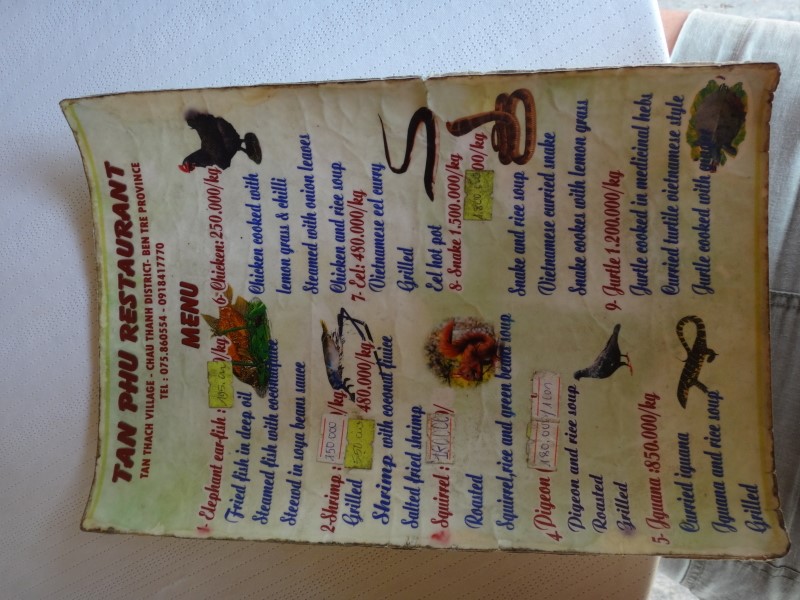 TAN PHU RESTAURANT
TAN THACH VILLAGE - CHAU THANH DISTRICT- BEN TRE PROVINCE
TEL : 075.860554 - 0918417770
MENU
1- Elephant ear-fish : /kg
Fried fish in deep oil
Steamed fish with
Steewd in soya beans sauce
2-Shrimp : 150.000 /kg
Grilled 480.000/kg
Shrimp with coconut juice
Salted fried shrimp
Squirrel :
Roasted
Squirrel,rice and green beans soup
4. Pigeon : 180,000/1con
Pigeon and rice soup
Roasted
Grilled
5- Iguana :850.000/kg
Curried iguana
Iguana and rice soup
Grilled
6- Chicken: 250.000/kg
Chicken cooked with
lemon grass & chilli
Steamed with onion leaves
Chicken and rice soup
7- Eel: 480.000/kg
Vietnamese eel curry
Grilled
Eel hot pot
8- Snake 1.500.000/kg
00/kg
Snake and rice soup
Vietnamese curried snake
Snake cookes with lemon grass
9- Turtle 1.200.000/kg
Turtle cooked in medicinal hebs
Curried turtle vietnamese style
Turtle cooked with